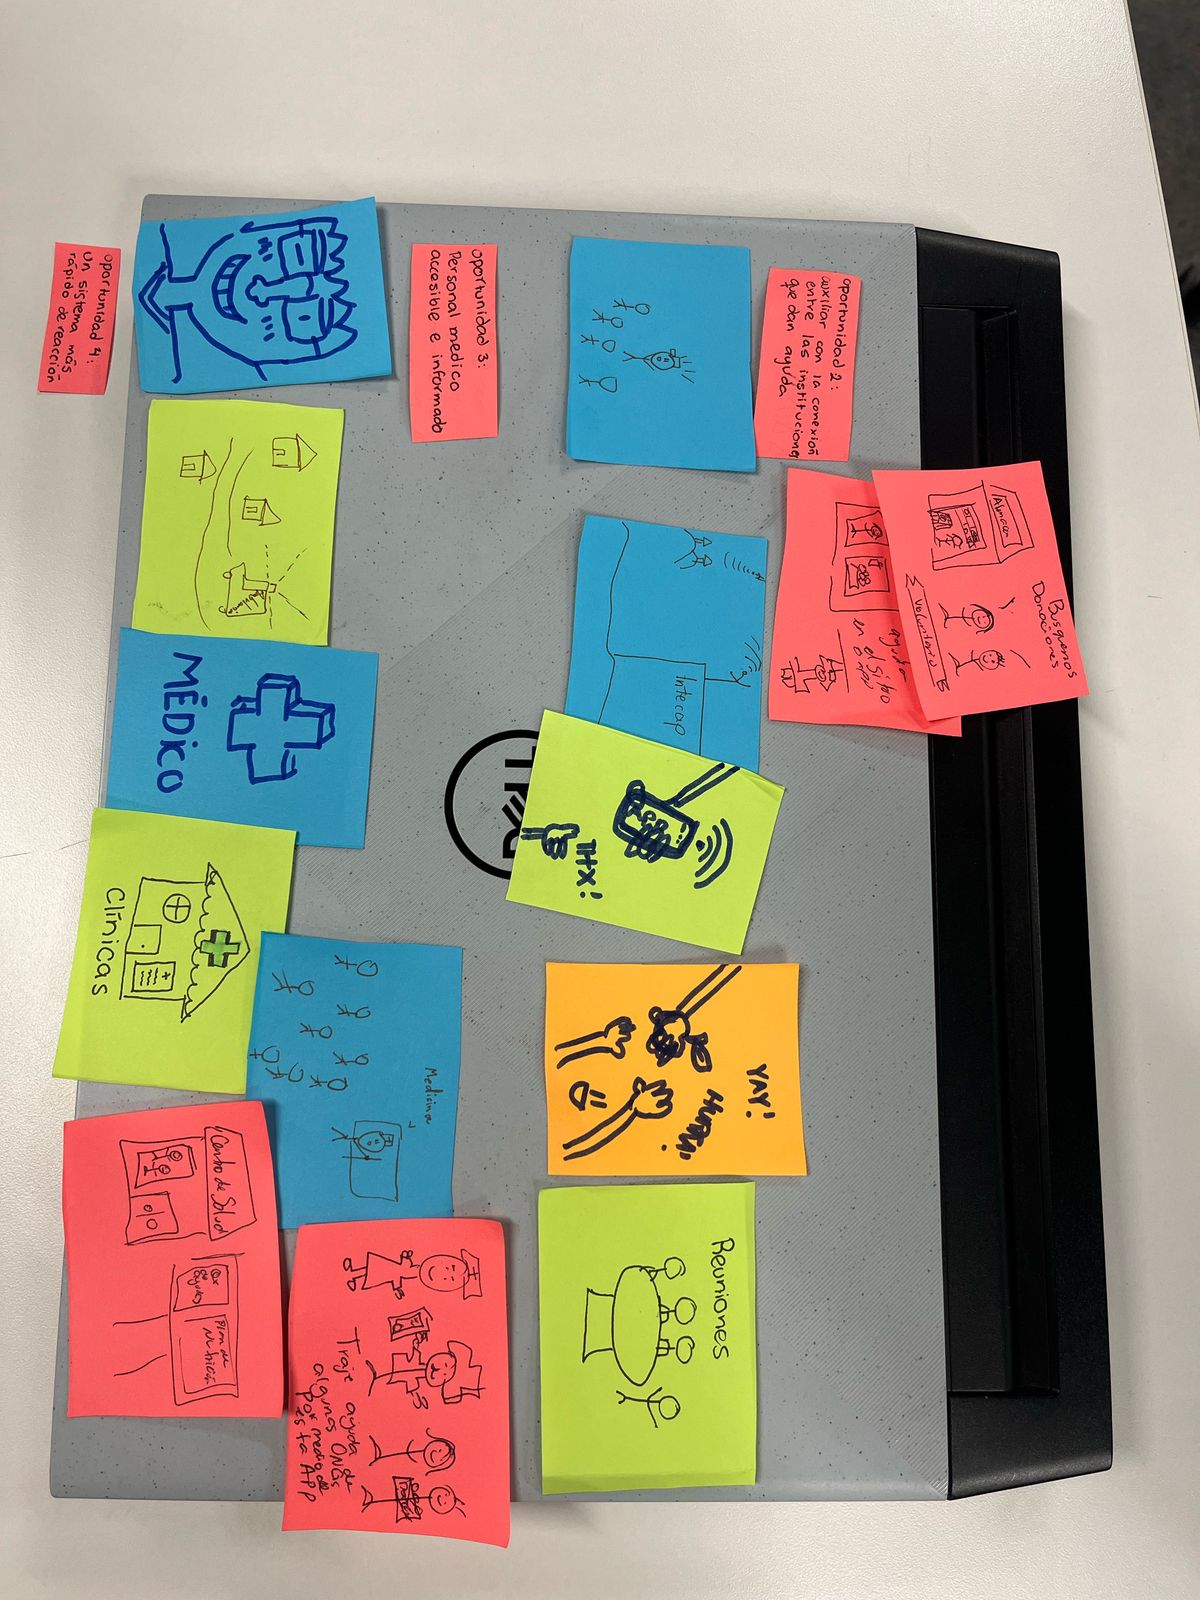 Busquemos
Donaciones
Almacen
Voluntario
ayuda
en el sitio
o APP
oportunidad 2:
auxiliar con la conexión
entre las instituciones
que dan ayuda
Intecap
THX!
YAY!
HURRA!
Reuniones
oportunidad 3:
Personal medico
accesible e informado
Medicina
Traje ayuda de
algunas ONGs
por medio de
esta APP
MÉDICO
Clínicas
Centro de Salud
Plan de
Nutrición
oportunidad 4:
un sistema más
rápido de reacción